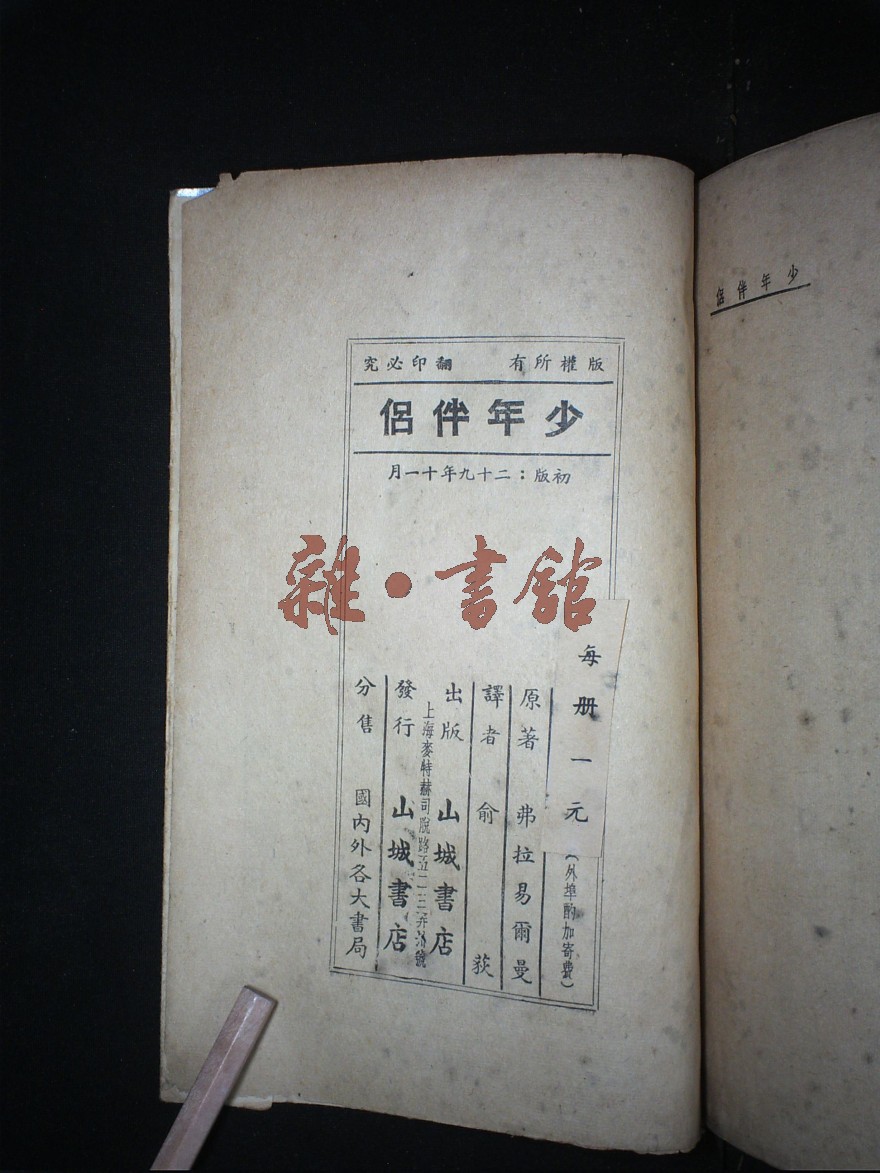 少年伴侶
版權所有 翻印必究
少年伴侶
初版：二十九年十一月
雜·書館
每册一元
(外埠酌加寄費)
原著 弗拉易爾曼
譯者 俞荻
出版 山城書店
上海麥特赫司脫路五一三弄
發行 山城書店
分售 國內外各大書局